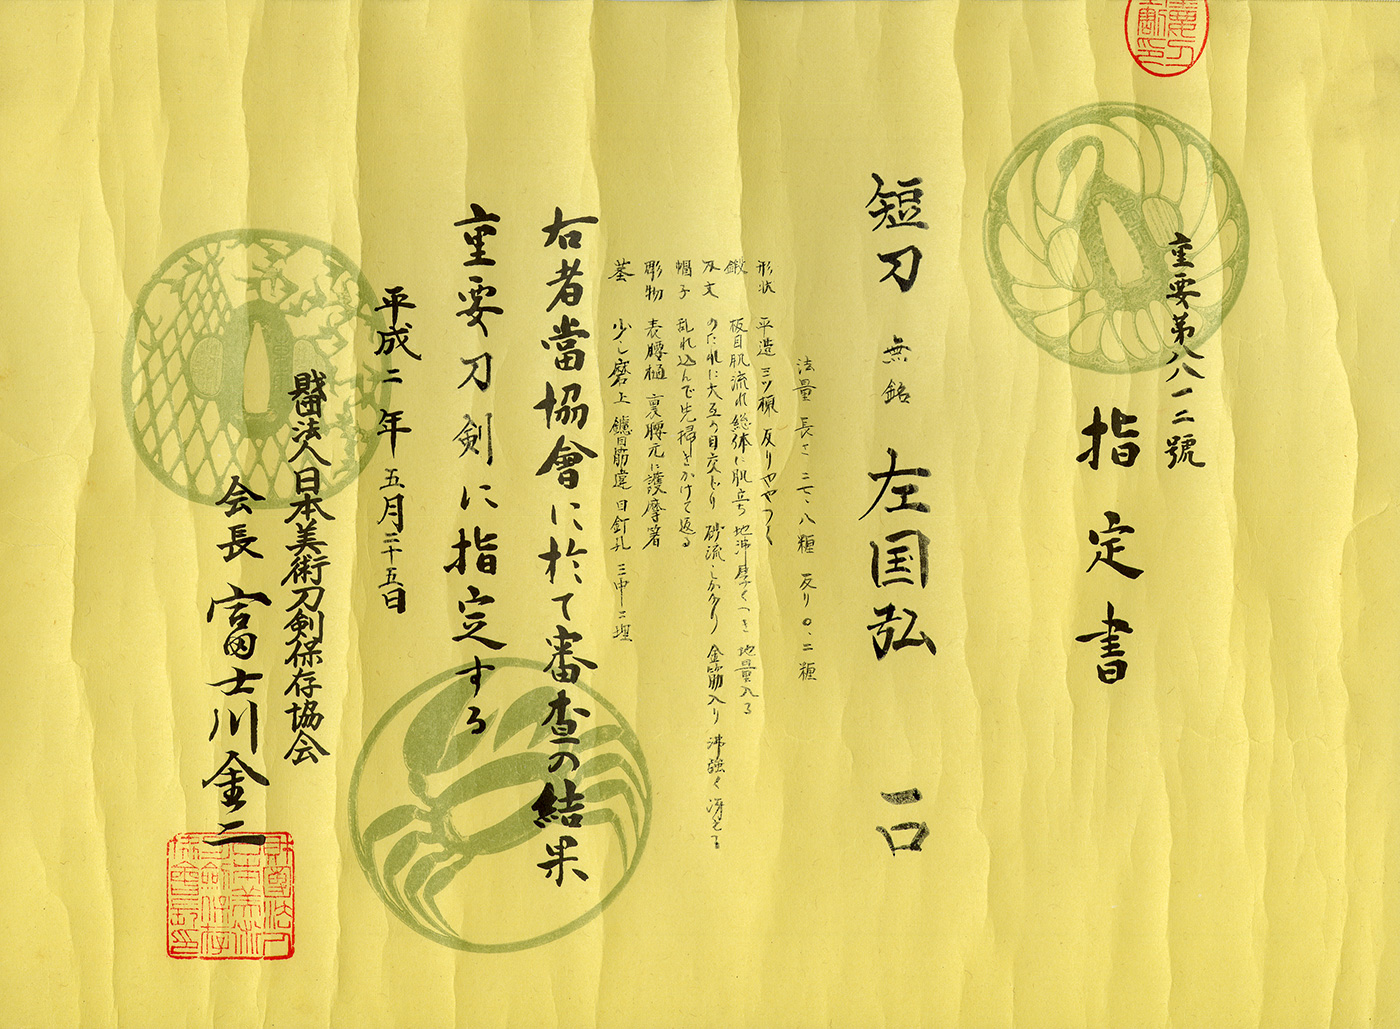 重要第八八一二號
指定書
短刀 無銘 左国弘 一口
法量 長さ 二七・八糎 反り 〇・二糎
形状 平造 三ツ棟 反りややつく
鍛 板目肌流れ 総体に肌立ち 地沸厚くつき 地景入る
刃文 のたれに大互の目交じり 砂流しかかり 金筋入り 沸強く 冴える
帽子 乱れ込んで先掃きかけて返る
彫物 表腰樋 裏腰元に護摩箸
茎 少し磨上 鑢目筋違 目釘孔 三中二埋
右者當協會に於て審査の結果
重要刀剣に指定する
平成二年五月二十五日
財団法人日本美術刀剣保存協会
会長 富士川金二